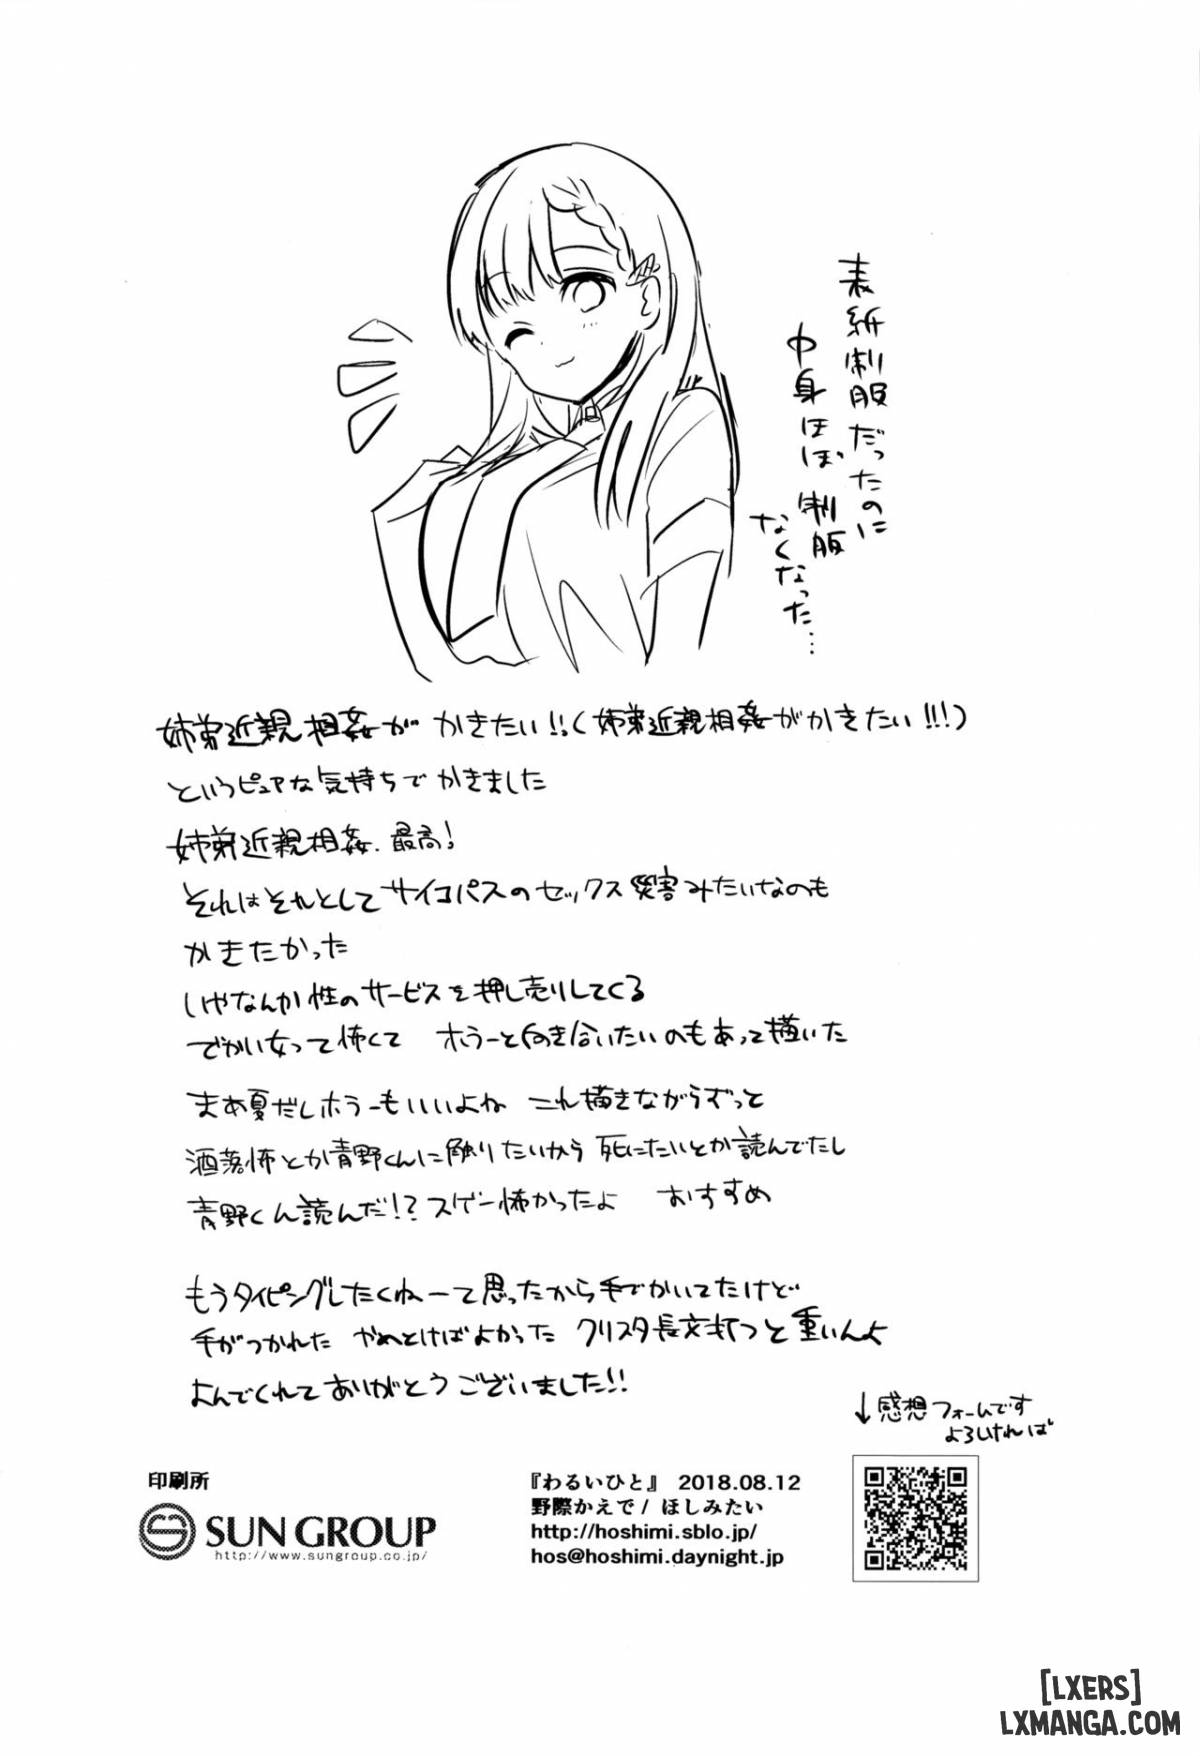 表紙制服だったのに
中身ほぼ制服
なくなった…
姉弟近親相姦が かきたい!!(姉弟近親相姦がかきたい!!!)
というピュアな気持ちで かきました
姉弟近親相姦、最高!
それはそれとして サイコパスのセックス災害みたいなのも
かきたかった
いやなんか性のサービスを押し売りしてくる
でかい女って怖くて ホラーと向き合いたいのもあって描いた
まあ夏だしホラーもいいよね これ描きながらずっと
洒落怖とか青野くんに触りたいから死にたいとか読んでたし
青野くん読んだ!?スゲー怖かったよ おすすめ
もうタイピングしたくねーって思ったから手でかいてたけど
手がつかれた やめとけばよかった クリスタ長文打つと重いんよ
よんでくれて ありがとうございました!!
↓感想フォームです
よろしければ
印刷所
SUN GROUP
http://www.sungroup.co.jp/
『わるいひと』 2018.08.12
野際かえで/ ほしみたい
http://hoshimi.sblo.jp/
hos@hoshimi.daynight.jp
[LXERS]
LXMANGA.COM